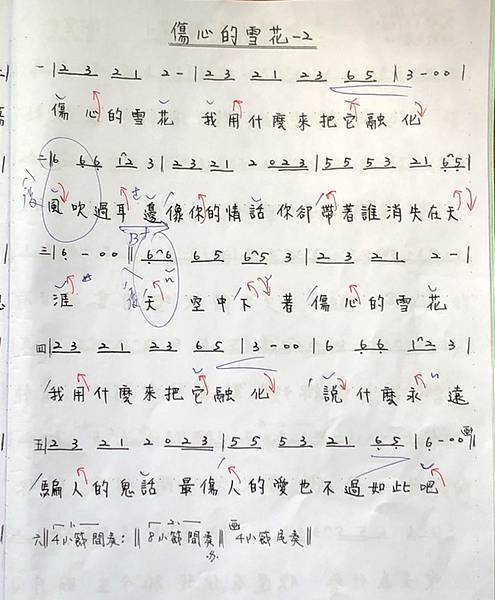 傷心的雪花-2
一|2 3 2 1 2 - | 2 3 2 1 2 3 6 5 | 3 - 0 0 |
傷心的雪花 我用什麼來把它融化
二|6 6 6 1 2 3 | 2 3 2 1 2 0 2 3 | 5 5 5 3 2 1 6 5 |
風吹過耳邊像你的情話你卻帶著誰消失在天
三|6 - 0 0 || 6 6 6 5 6 5 3 | 2 3 2 1 2 - |
涯 天空中下著傷心的雪花
四|2 3 2 1 2 3 6 5 | 3 - 0 0 | 6 6 6 1 2 3 |
我用什麼來把它融化 說什麼永遠
五|2 3 2 1 2 0 2 3 | 5 5 5 3 2 1 6 5 | 6 - 0 0 ||
騙人的鬼話 最傷人的愛也不過如此吧
六||4小節間奏:||8小節間奏||4小節尾奏||